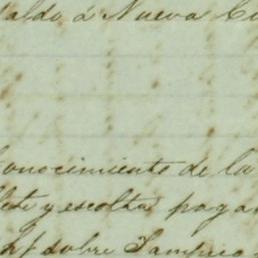 aldo á Nueva
conocimiento de la
flete y escolta paga
sobre Tampico